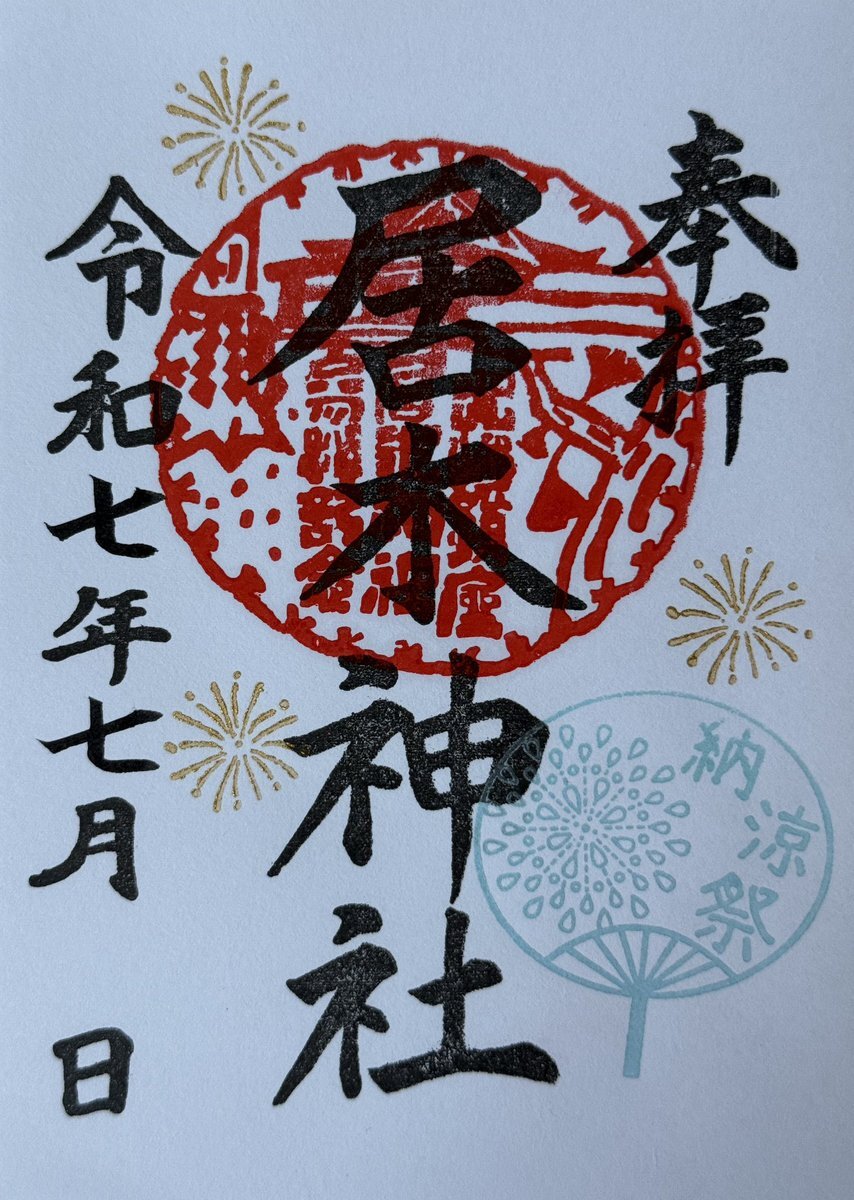 奉拝
居木神社
令和七年七月 日
納涼祭